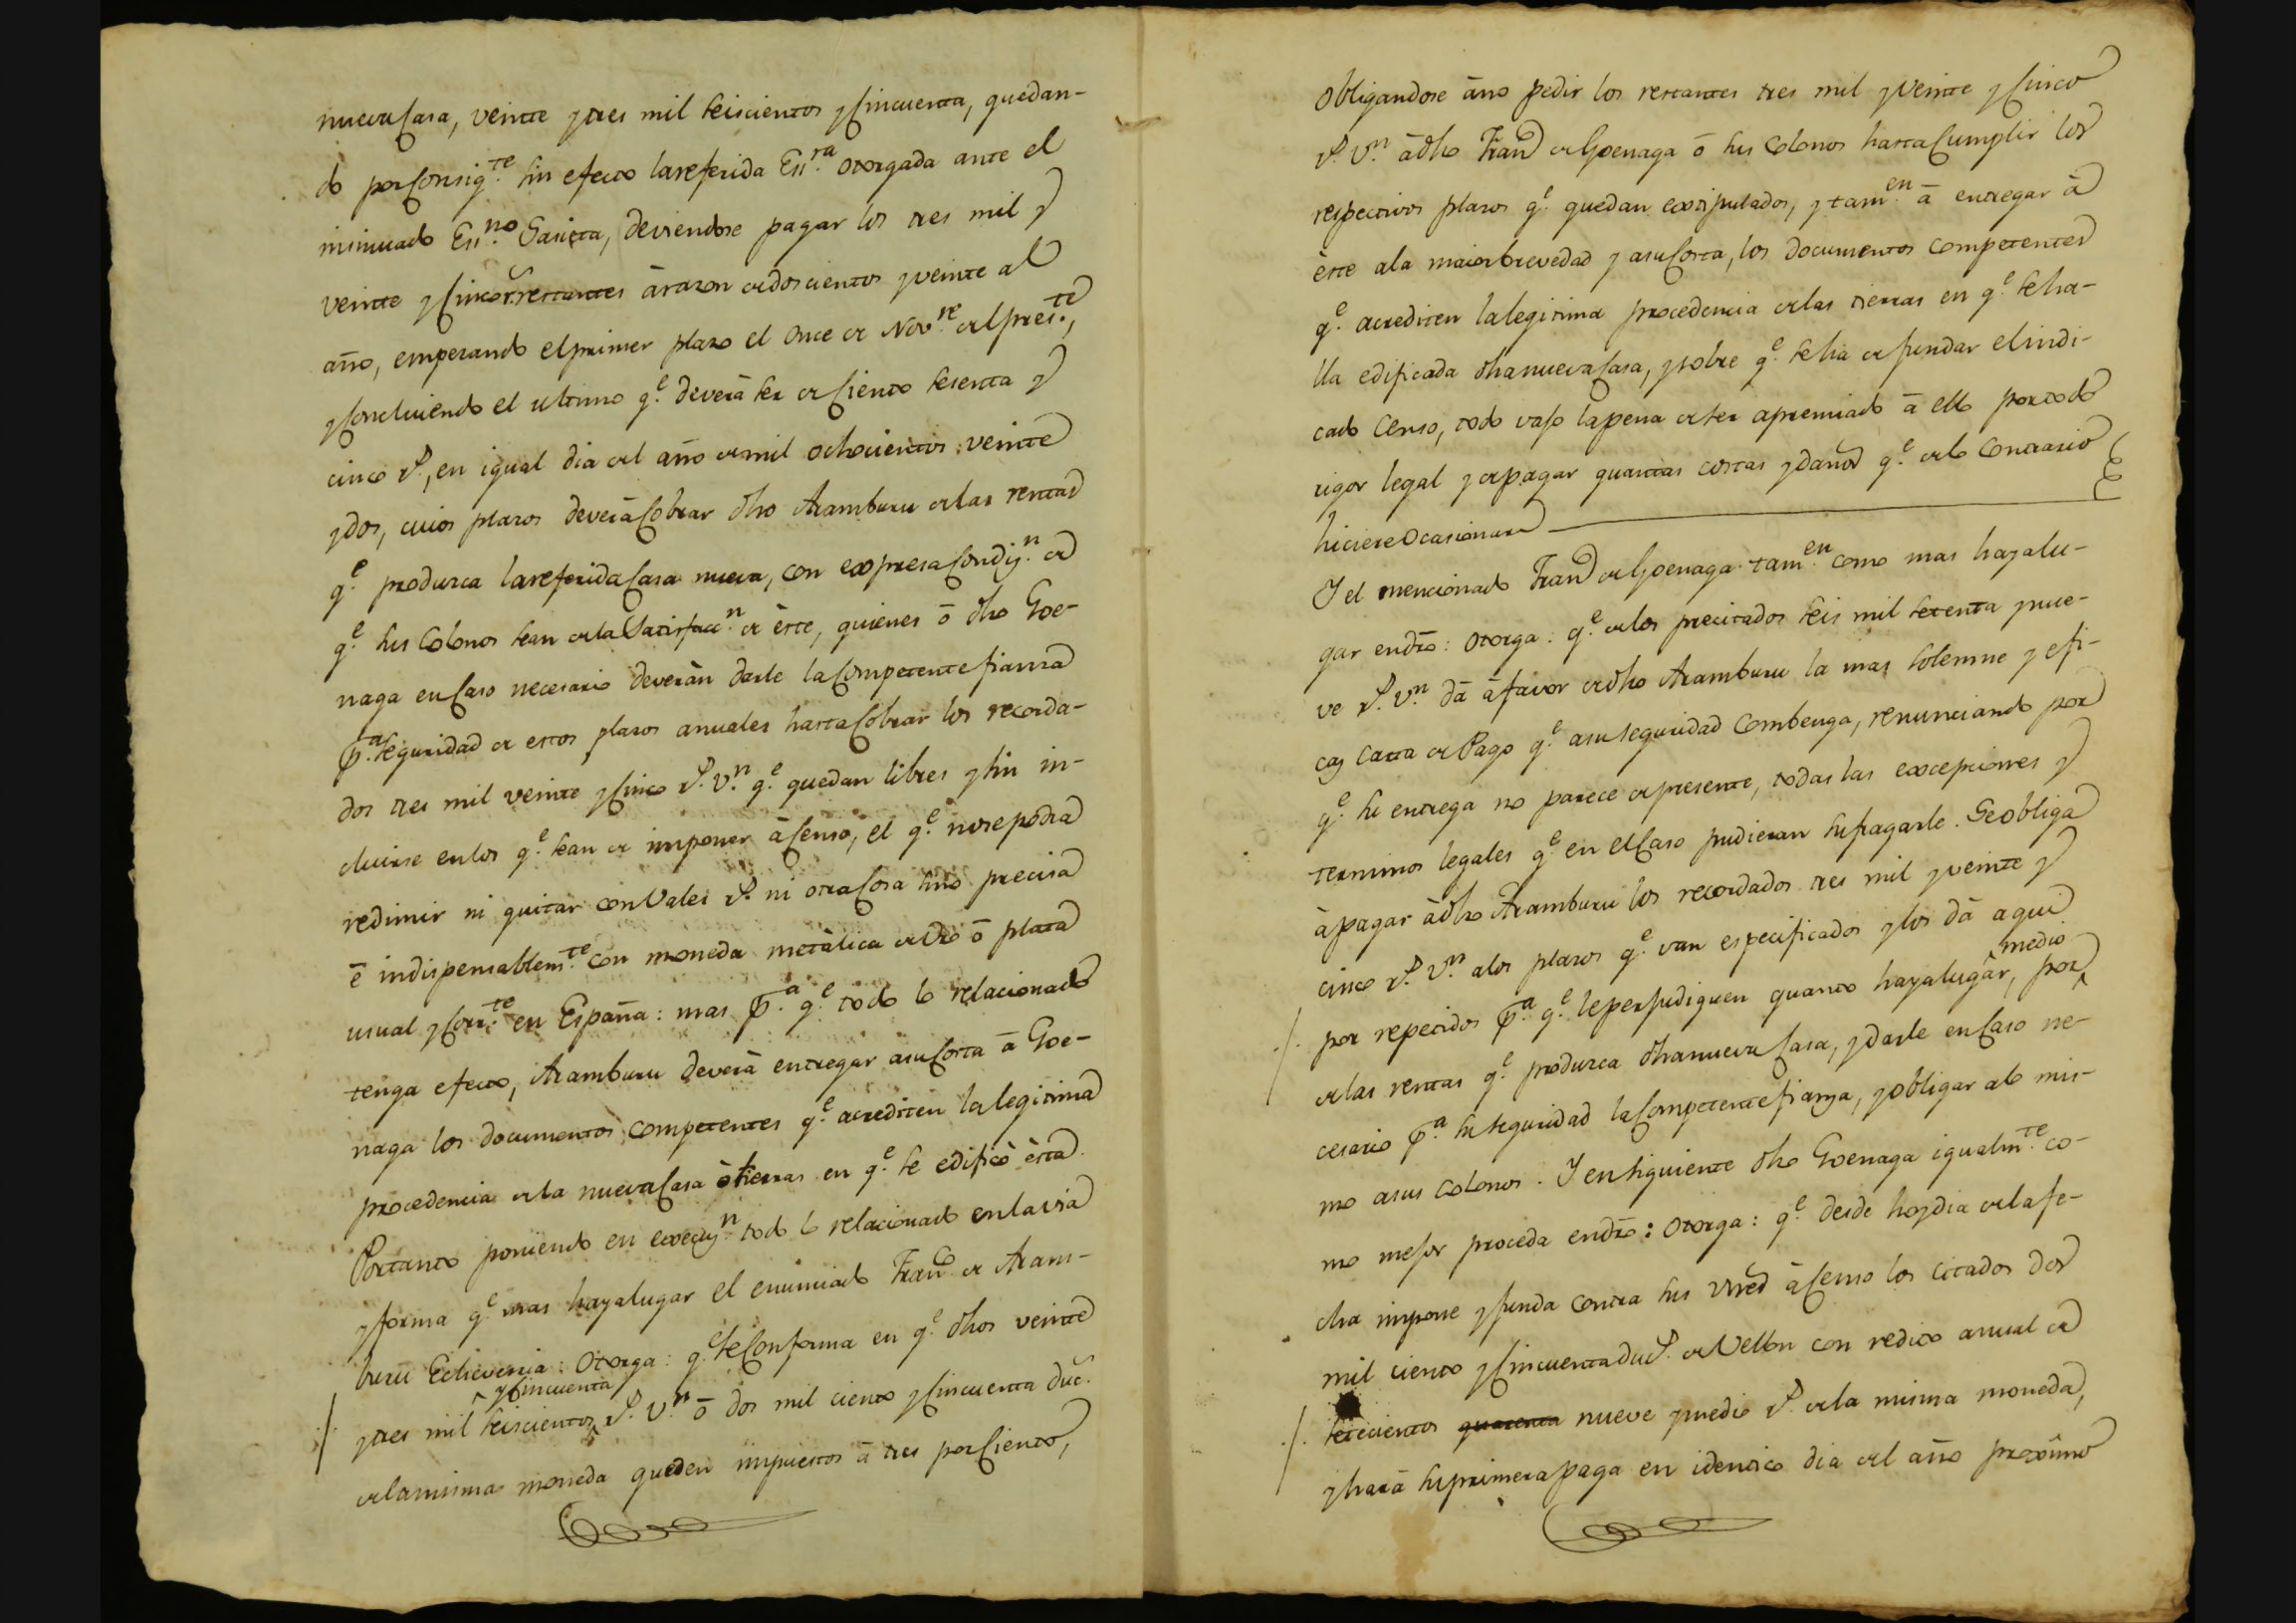 nueva Casa, veinte y tres mil seiscientos y Cincuenta, quedan-
do por Consigte. sin efecto la referida Essra. otorgada ante el
insinuado Essno. Sasieta, deviendose pagar los tres mil y
veinte y Cinco rs. restantes à razon de doscientos y veinte al
año, empezando el primer plazo el Once de Novre. del preste.,
y Concluiendo el ultimo qe. deverà ser de Ciento sesenta y
cinco rs., en igual dia del año de mil ochocientos veinte
y dos, cuios plazos deverà Cobrar dho Aramburu de las rentas
qe. produzca la referida Casa nueva, con expresa Condizn. de
qe. sus Colonos sean de la Satisfaccn. de èste, quienes ô dho Goe-
naga en Caso necesario deveràn darle la Competente fianza
pa. seguridad de estos plazos anuales hasta Cobrar los recorda-
dos tres mil veinte y Cinco rs. vn. qe. quedan libres y sin in-
cluirse en los qe. sean de imponer à Censo, el qe. no se podrà
redimir ni quitar con Vales rs. ni otra Cosa sino precisa
ê indispensablemte. con moneda metàlica de Oro ô plata
usual y Corrte. en España: mas pa. qe. todo lo relacionado
tenga efecto, Aramburu deverà entregar a su Costa â Goe-
naga los documentos competentes qe. acrediten la legitima
procedencia de la nueva Casa ô tierras en qe. se edificò èsta.
Portanto poniendo en execuzn. todo lo relacionado en la via
y forma qe. mas haya lugar el enunciado Franco de Aram-
buru Echeverria: Otorga: qe. se Conforma en qe. dhos veinte
y Cincuenta
y tres mil seiscientos rs. vn. ô dos mil ciento y Cincuenta duc.
de la misma moneda queden impuestos â tres por Ciento,
Obligandose âno pedir los restantes tres mil y Veinte y Cinco
rs. vn. âdho Franco de Goenaga ô sus Colonos hasta Cumplir los
respectivos plazos qe. quedan extipulados, y tamen. â entregar â
èste ala maior brevedad y asu Costa, los documentos competentes
qe. acrediten la legitima procedencia de las tierras en qe. se ha-
lla edificada dha nueva Casa, y sobre qe. se ha de fundar el indi-
cado Censo, todo vajo la pena de ser apremiado â ello por todo
rigor legal y de pagar quantas costas y daños qe. de lo Contrario
hiciere Ocasionare
Y el mencionado Franco de Goenaga tamen. como mas haya lu-
gar en dro: Otorga: qe. de los precitados seis mil setenta y nue-
ve rs. vn. dâ â favor de dho Aramburu la mas solemne y efi-
caz Carta de Pago qe. asu seguridad Combenga, renunciando por
qe. su entrega no parece de presente, todas las excepciones y
terminos legales qe. en el Caso pudieran sufragarle. Se obliga
à pagar àdho Aramburu los recordados tres mil y veinte y
cinco rs. vn. alos plazos qe. van especificados y los dâ aqui
medio
por repetidos pa. qe. le perjudiquen quanto haya lugar, por
de las rentas qe. produzca dha nueva Casa, y darle en Caso ne-
cesario pa. su seguridad la Competente fianza, y obligar alo mis-
mo asus colonos. Y en siguiente dho Goenaga igualmte. co-
mo mejor proceda en dro: Otorga: qe. desde hoy dia de la fe-
cha impone y funda contra sus Vnes â Censo los citados dos
mil ciento y Cincuenta ducs. de Vellon con redito anual de
setecientos quarenta nueve y medio rs. de la misma moneda,
y harâ su primera paga en identico dia del año proximo